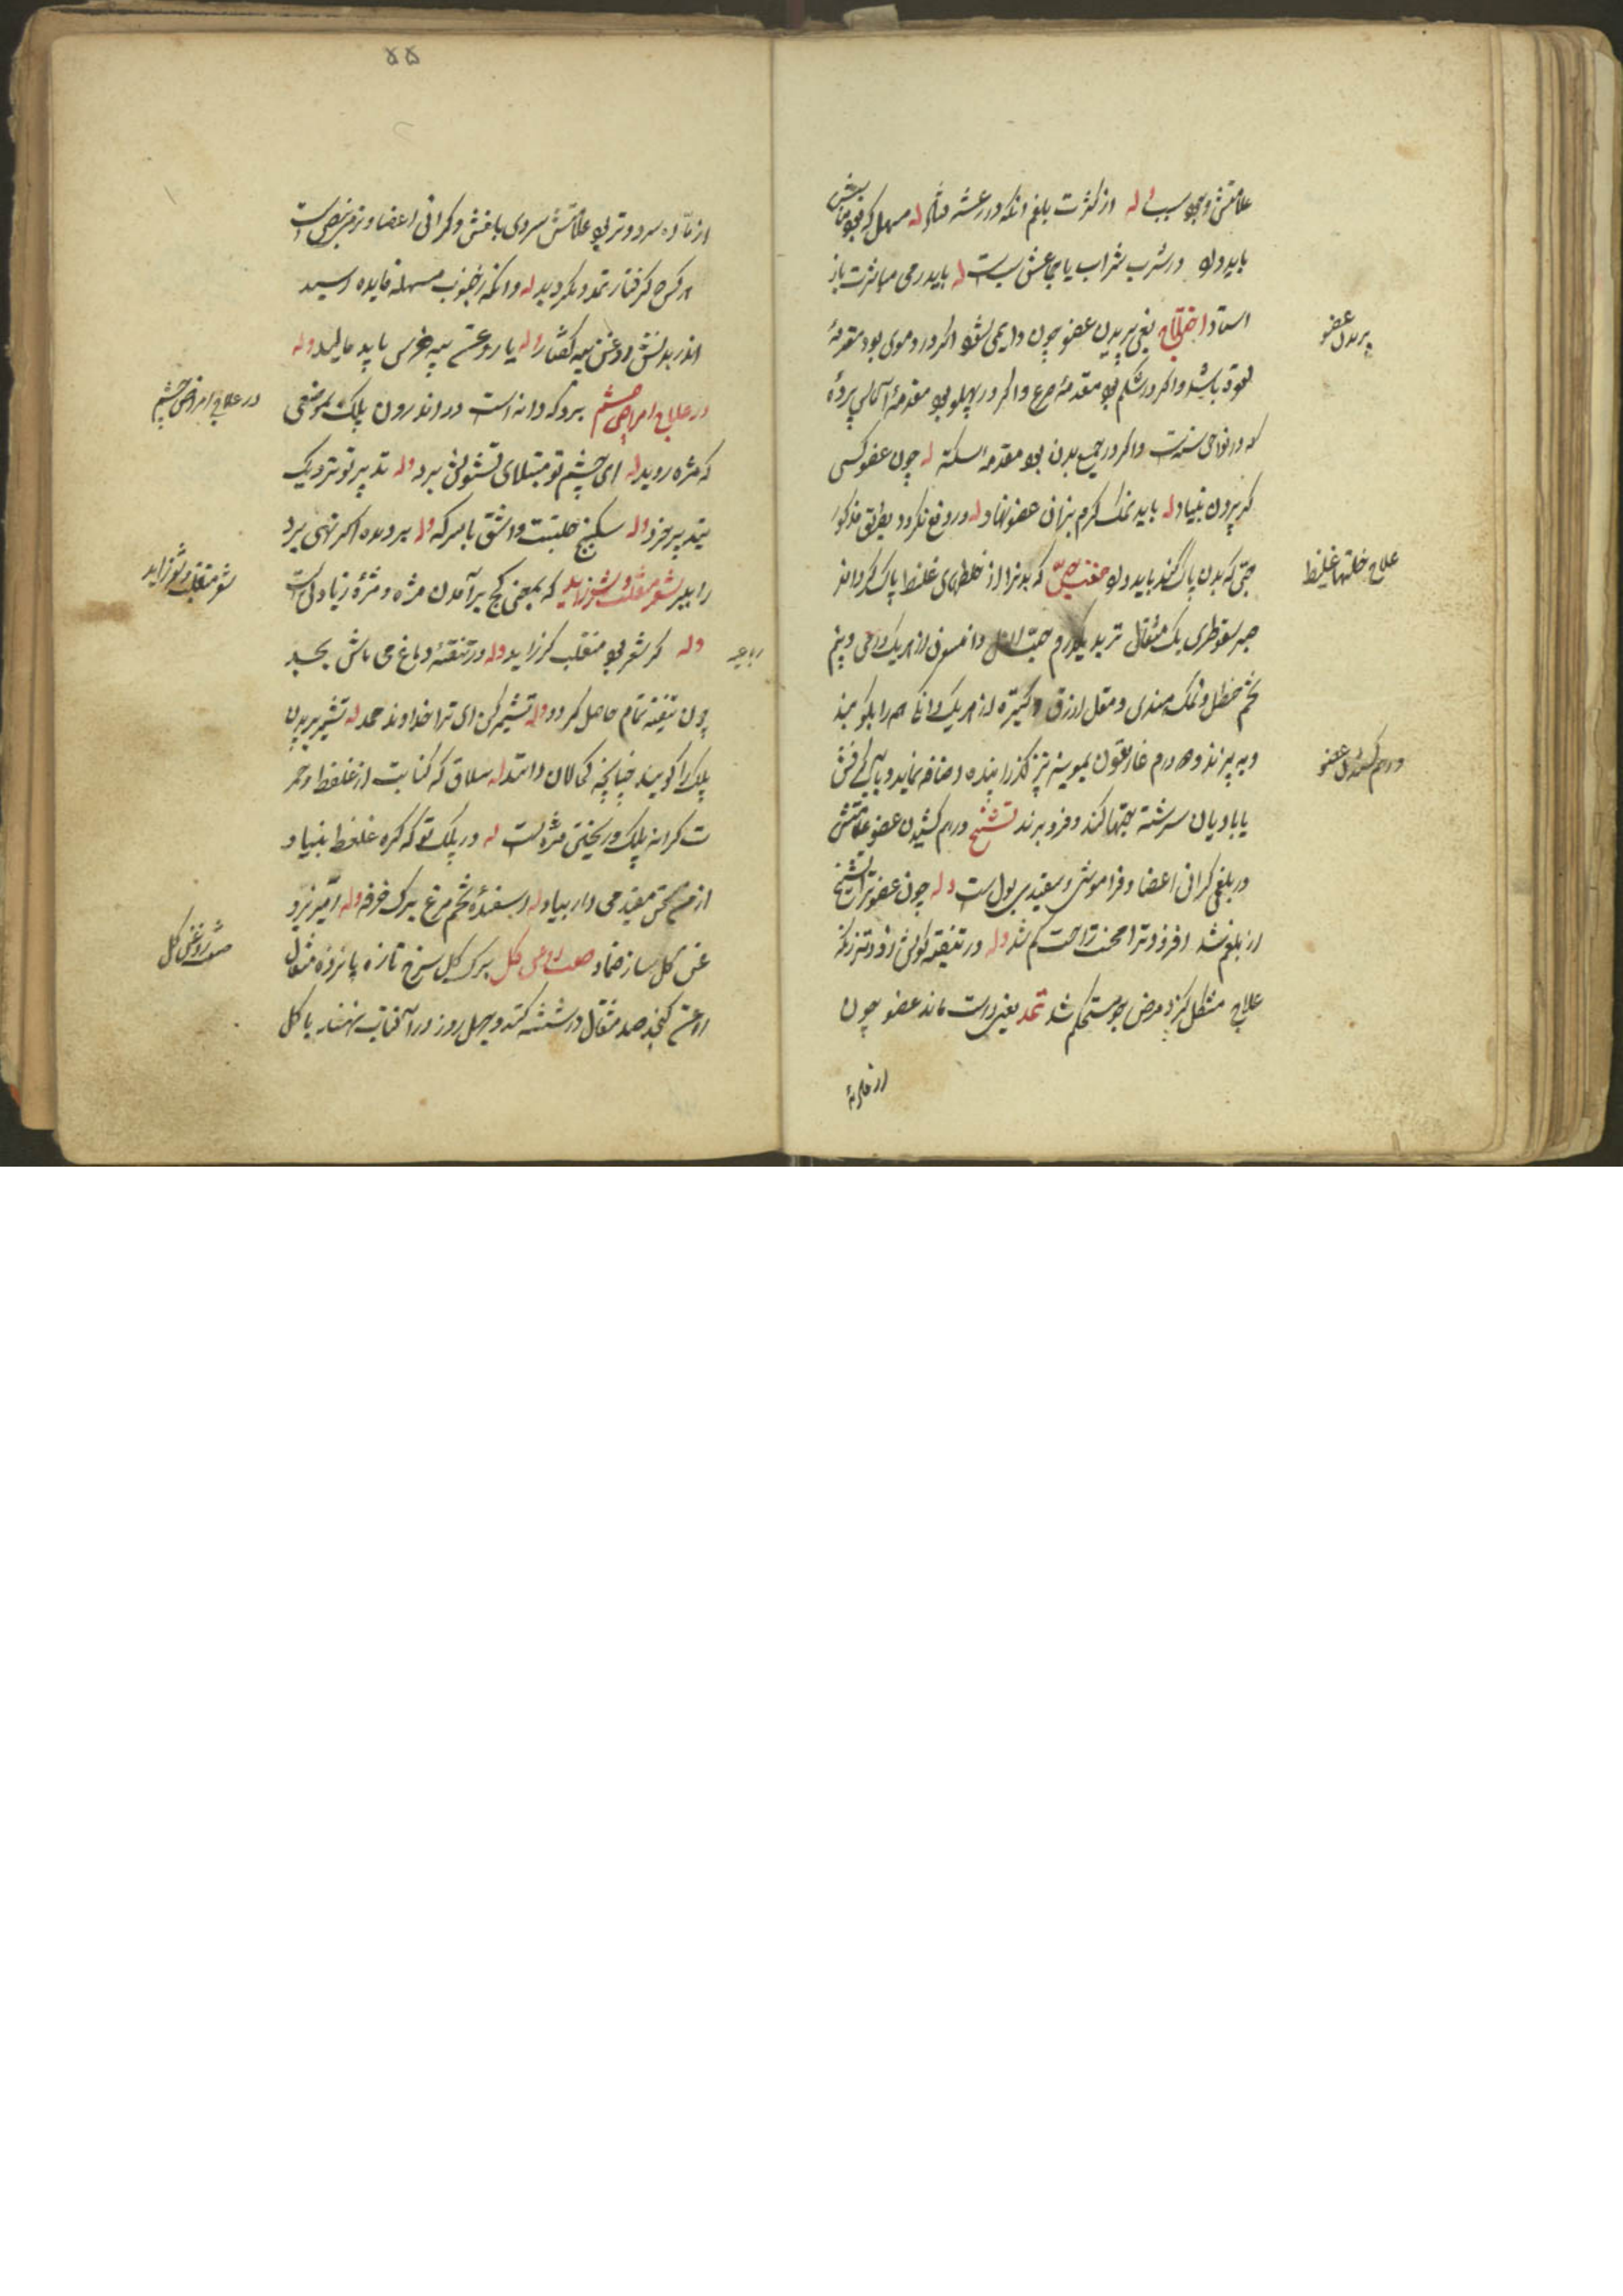 علامتش و چو سبب وله از کثرت بلغم آنکه در رعشه فتاد وله مسهل که بود
باید داد در شرب شراب یا می عشق است له باید رمی مباشرت باز
استاد اختلاج یعنی پریدن عضو چون دایمی شود اگر در روی بود مقدمهٔ
لقوه باشد و اگر در شکم بود مقدمهٔ صرع و اگر در پهلو بود مقدمهٔ آماس پردهٔ
که در نواحی سینه است و اگر در جمیع بدن بود مقدمه سکته له چون عضو کسی
که پریدن بنیاد له باید نمک گرم بر آن عضو نهاد وله ور دفع نگردد بطریق مذکور
حبّی که بدن پاک کند باید داد صفت حبّی که بدن را از خلطهای غلیظ پاک گرداند
صبر سقوطری یک مثقال تربد یکدرم حبّ النیل و انیسون از هر یک دانگی و نیم
تخم حنظل و نمک هندی و مقل ازرق و کتیره از هر یک دانگ هم را بکوبند
و به پیزند و دو درم غاریقون بمویینه پز گذرانیده اضافه نماید و بآب کرفس
یا بادیان سرشته حبها کند و فرو برند تشنج درهم کشیدن عضو علامتش
در بلغمی گرانی اعضا و فراموشی و سفیدی بول است وله چون عضو ترا تشنج
از بلغم شد افزود ترا محنت و راحت کم شد وله در تنقیه کوش زود و تبرید مکن
علاج مشکل گردد مرض چو مستحکم شد تمدد یعنی راست ماندن عضو چون
از مادهٔ
پریدن عضو
علاج خلطهای غلیظ
درهم کشیدن عضو
۵۵
از مادّه سرد و تر بود علامتش سردی بافش و گرانی اعضا و نرمی نبض است
هر کس گرفتار تمدد گردید له و آنکه ز حبوب مسهله فایده رسید
اندر بدنش روغن پیه کفتار وله یا روغن پیه خرس باید مالید وله
در علاج امراض چشم برد که دانه است در اندرون پلک بموضعی
که مژه روید له ای چشم تو مبتلای تشویش برد وله تدبیر تو نزدیک
بتدبیر خرد وله سکبینج حلتیت و اشق با سرکه وله بر دیده اگر نهی برد
را ببرد شعر منقلب و شعر زاید که بمعنی کج برآمدن مژه و مژهٔ زیادتی است
وله گر شعر بود منقلب گر زاید وله در تنقیهٔ دماغ می باش بجد
چون تنقیهٔ تمام حاصل گردد وله تشمیر کن ای ترا خداوند ممد له تشمیر بریدن
پلک را گویند چنانچه کحالان دانند له سلاق که کنایت از غلظ و حمر
ت کرانه پلک و ریختن مژه است له در پلک تو گر که غلظ بنیاد
از من سخن مفید می دار بیاد له از سفیدهٔ تخم مرغ برگ خرفه وله آمیز برو
غن گل ساز ضماد صفت روغن گل برگ گل سرخ تازه پانزده مثقال
روغن کنجد صد مثقال در شیشه کند و چهل روز در آفتاب نهند یا گل
در علاج امراض چشم
شعر منقلب و شعر زاید
رباعیه
صفت روغن گل